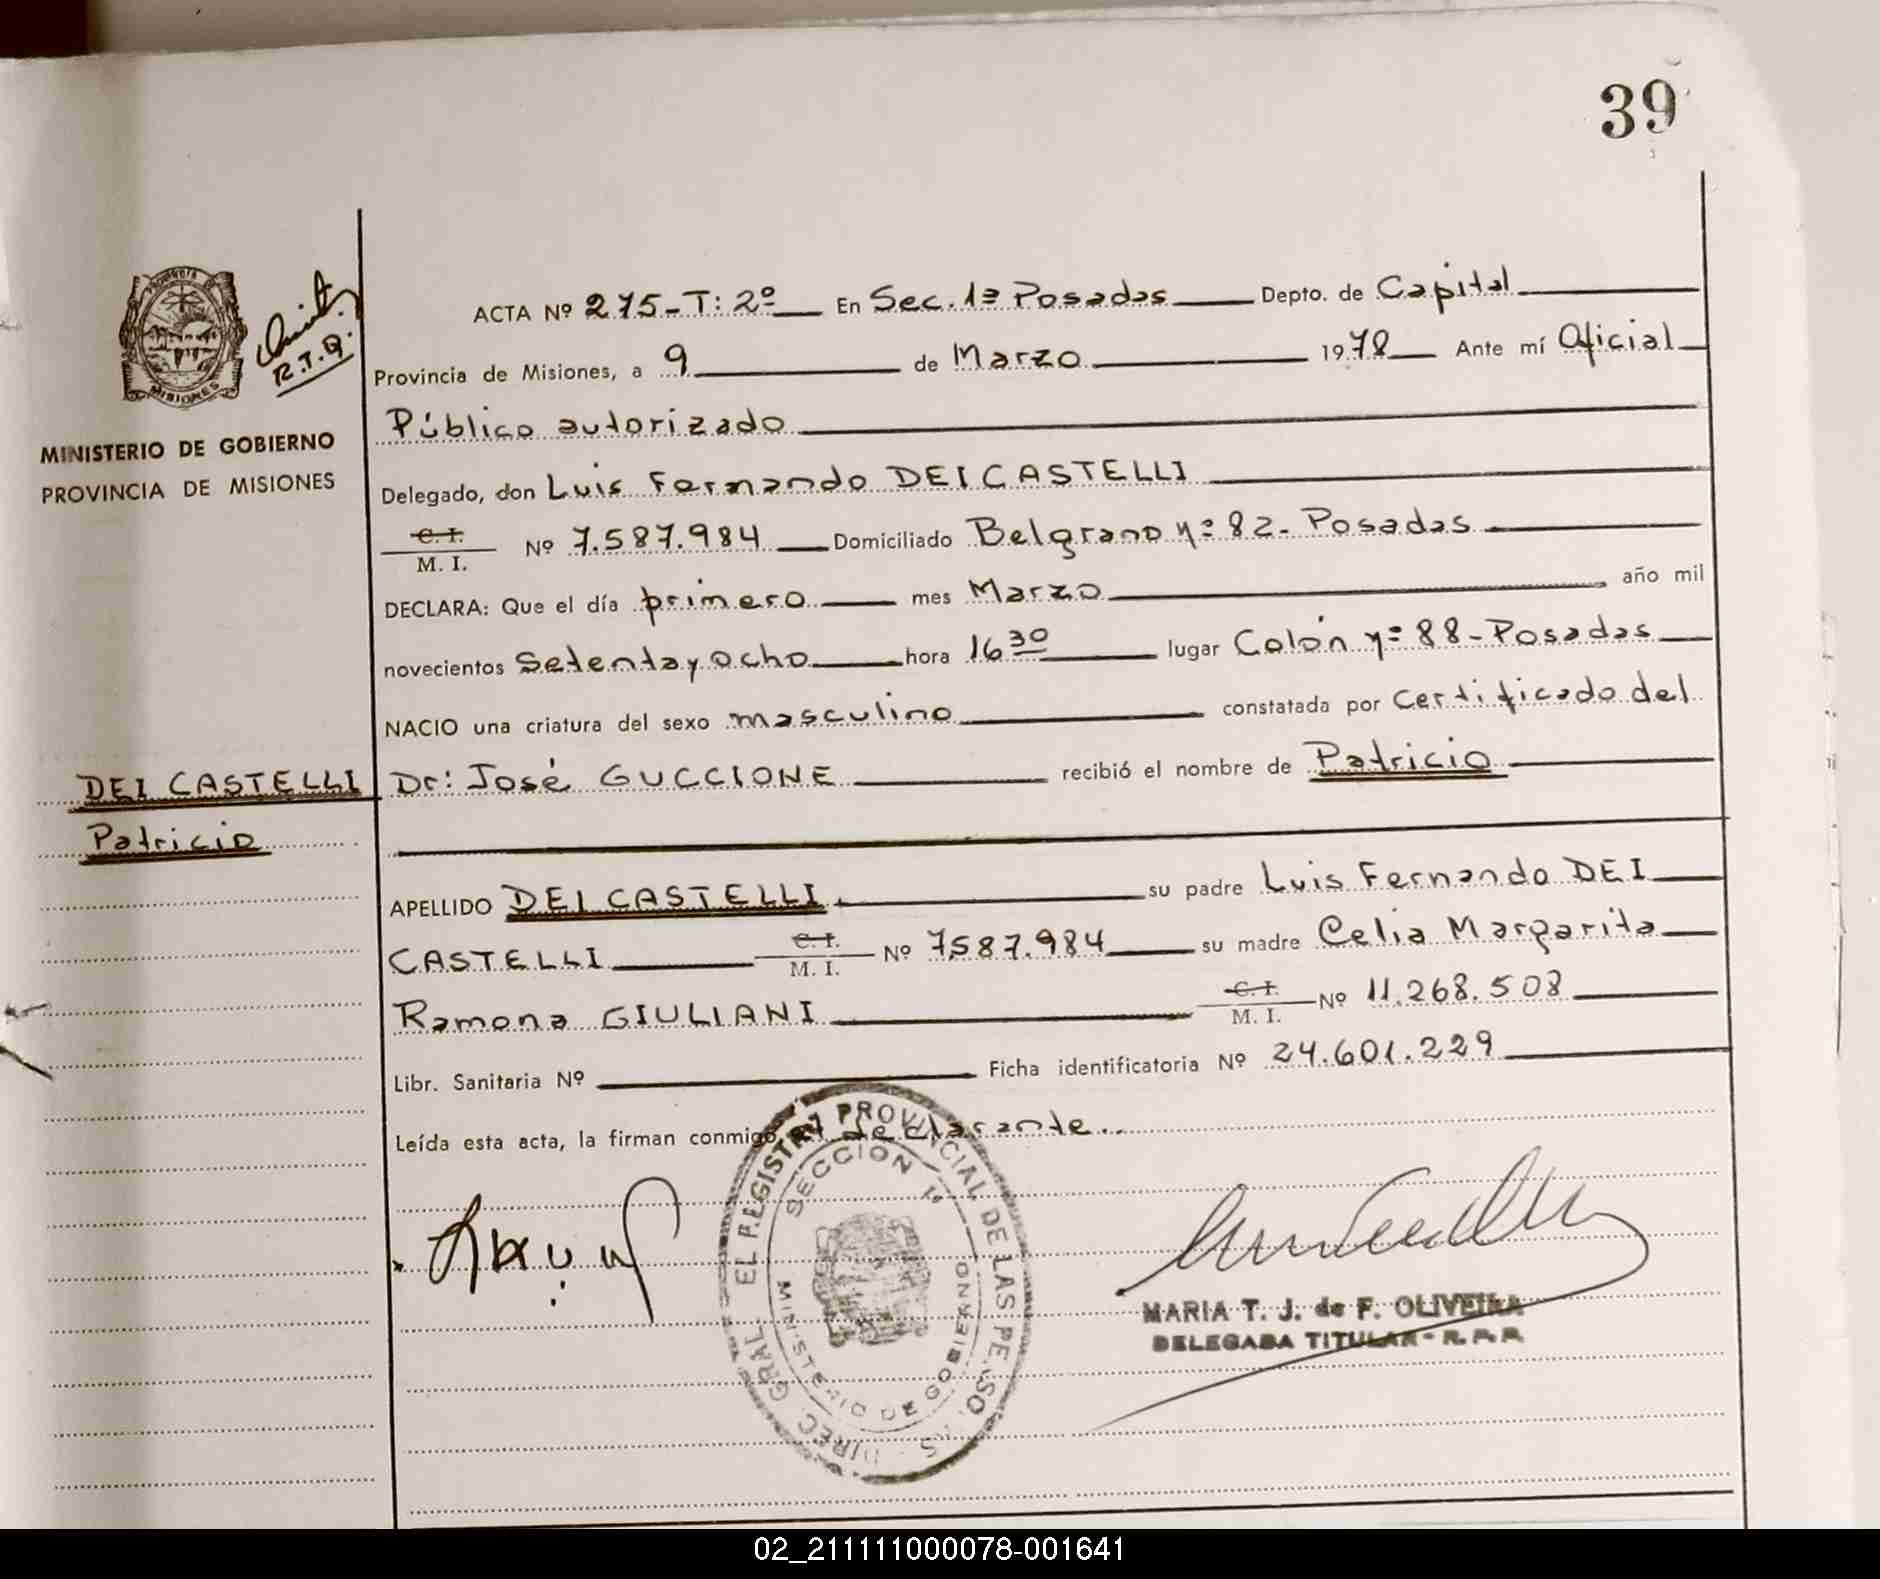 39
PROVINCIA
MISIONES
R.T.Q.
MINISTERIO DE GOBIERNO
PROVINCIA DE MISIONES
ACTA Nº 275-T: 2º En Sec. 1ª Posadas Depto. de Capital
Provincia de Misiones, a 9 de Marzo 1978 Ante mí Oficial
Público autorizado
Delegado, don Luis Fernando DEI CASTELLI
C. I.
M. I. Nº 7.587.984 Domiciliado Belgrano nº 82-Posadas
DECLARA: Que el día primero mes Marzo año mil
novecientos setenta y ocho hora 16 30 lugar Colón nº 88-Posadas
NACIO una criatura del sexo masculino constatada por certificado del
DEI CASTELLI Dr: José GUCCIONE recibió el nombre de Patricio
Patricio
APELLIDO DEI CASTELLI su padre Luis Fernando DEI
CASTELLI C. I. M. I. Nº 7587.984 su madre Celia Margarita
Ramona GIULIANI C. I. M. I. Nº 11.268.508
Libr. Sanitaria Nº Ficha identificatoria Nº 24.601.229
Leída esta acta, la firman conmigo el declarante..
DIREC. GRAL. EL REGISTRO PROVINCIAL DE LAS PERSONAS
SECCION 1ª
MINISTERIO DE GOBIERNO
MARIA T. J. de F. OLIVEIRA
DELEGADA TITULAR - R. P. P.
02_211111000078-001641